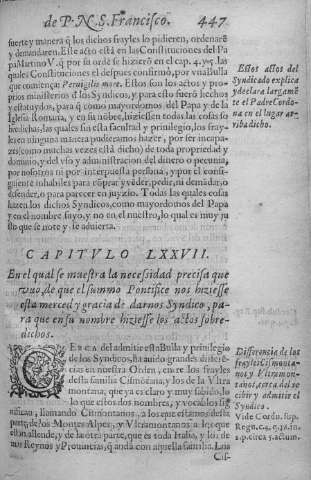 de P. N. S. Francisco. 447
suerte y manera q̃ los dichos frayles lo pidieren, ordenarē
y demandaren. Este acto està en las Constituciones del Pa
pa Martino V. q̃ por su orde se hizierō en el cap. 4. y 5. las
quales Constituciones el despues confirmò, por vna Bulla
que comiença: Peruigilis more. Estos son los actos y pro-
prios ministerios d los Syndicos, y para esto fuerō hechos
y estituydos, para q̃ como mayordomos del Papa y de la
Iglesia Romana, y en su nōbre, hiziessen todas las cosas so
bredichas, las quales sin esta facultad y priuilegio, los fray-
les en ninguna manera pudieramos hazer, por ser incapa-
zes (como muchas vezes està dicho) de toda propriedad y
dominio, y del vso y administracion del dinero o pecunia,
por nosotros ni por interpuesta persona, y por el consi-
guiente inhabiles para cōprar, y vēder, pedir, ni demādar, o
defender, o para parecer en juyzio. Todas las quales cosas
hazen los dichos Syndicos, como mayordomos del Papa
y en el nombre suyo, y no en el nuestro, lo qual es muy ju
sto que se note y se aduierta.
Estos actos del
Syndicado explica
y declara largamē
te el Padre Cordo-
ua en el lugar ar-
riba dicho.
CAPITVLO LXXVII.
En el qual se muestra la necessidad precisa que
vuo, de que el summo Pontifice nos hiziesse
esta merced y gracia de darnos Syndico, pa-
ra que en su nombre hiziesse los actos sobre-
dichos.
CERCA del admitir esta Bulla y priuilegio
de los Syndicos, ha auido grandes differē-
cias en nuestra Orden, entre los frayles
desta familia Cismōtana, y los de la Vltra
montana, que ya es claro y muy sabido, lo
lo que estos dos nombres, y vocablos si-
nifican, llamando Cismontanos, a los que estamos desta
parte, de los Montes Alpes, y Vltramontanos a los que
estan allende, y de la otra parte, que es toda Italia, y los de
mas Reynos y Prouincias, q̃ anda con aquella familia. Los
Cis-
Differencia de los
frayles Cismonta-
nos y Vltramon-
tanos, acerca del re
cibir y admitir el
Syndico.
Vide Cordu. sup.
Regu. c. 4. q. 32. in
2. p. circa 5. actum.